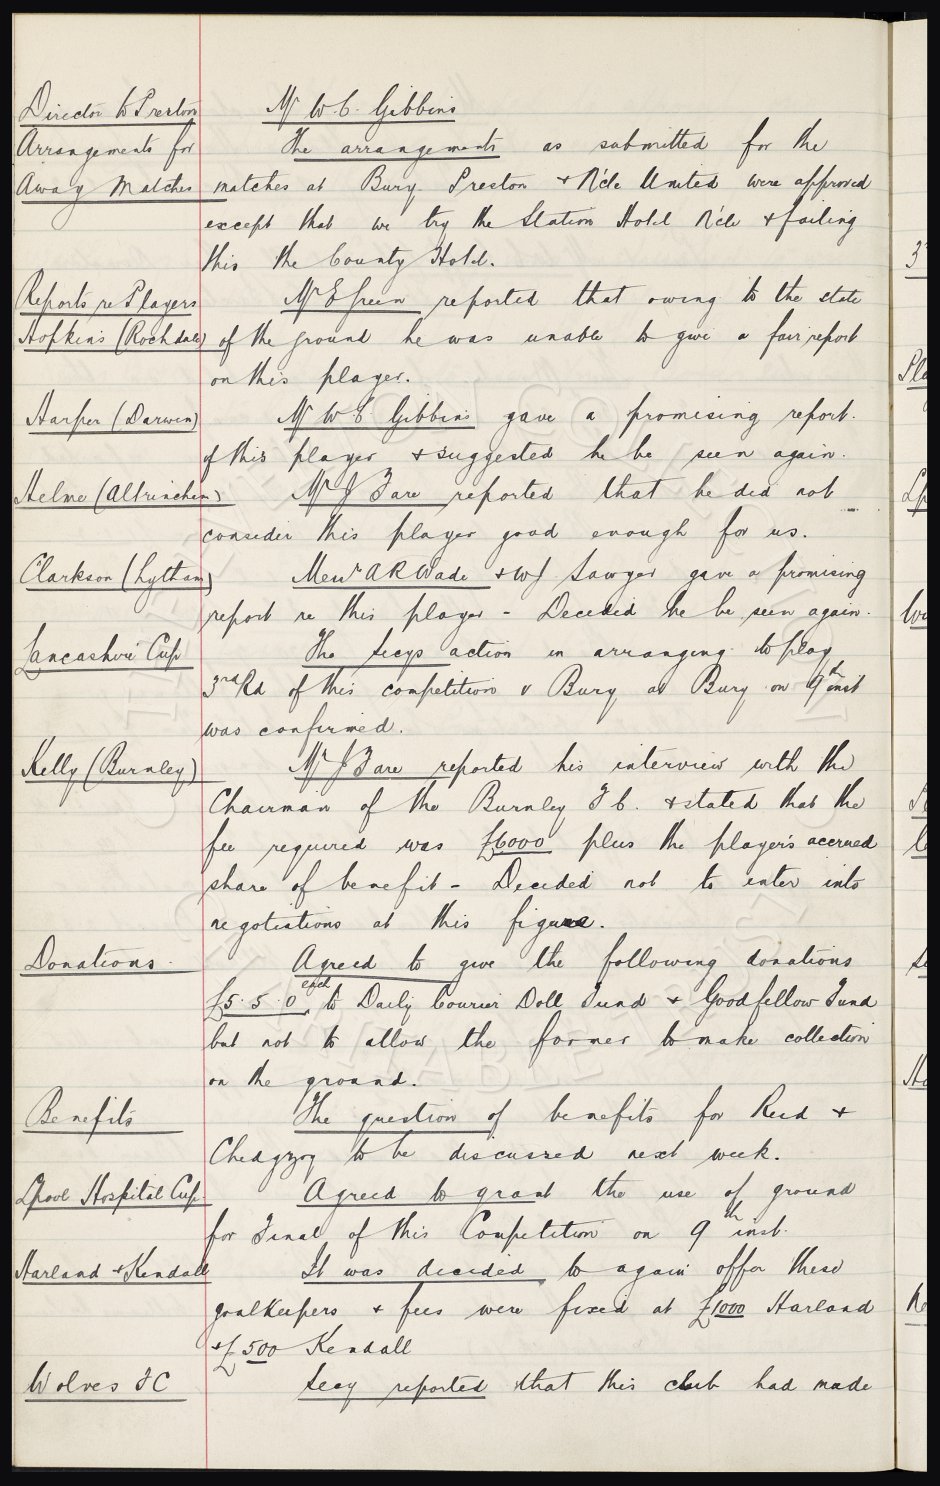 Director to Preston Mr W.C. Gibbins
Arrangements for The arrangements as submitted for the
Away Matches matches at Bury Preston & N'cle United were approved
except that we try the Station Hotel N'cle & failing
this the County Hotel.
Reports re Players Mr E Green reported that owing to the state
Hopkins (Rochdale) of the ground he was unable to give a fair report
on this player.
Harper (Darwen) Mr W C Gibbins gave a promising report
of this player & suggested he be seen again.
Helme (Altrincham) Mr J Fare reported that he did not
consider this player good enough for us.
Clarkson (Lytham) Messrs A R Wade & W J Sawyer gave a promising
report re this player - Decided he be seen again.
Lancashire Cup The Secys action in arranging to play
3rd Rd of this competition v Bury at Bury on 9th inst
was confirmed.
Kelly (Burnley) Mr J Fare reported his interview with the
Chairman of the Burnley F C. & stated that the
fee required was £6000 plus the player's accrued
share of benefit - Decided not to enter into
negotiations at this figure.
Donations. Agreed to give the following donations
£5. 5. 0 each to Daily Courier Doll Fund & Goodfellow Fund
but not to allow the former to make collection
on the ground.
Benefits The question of benefits for Reid &
Chedgzoy to be discussed next week.
L'pool Hospital Cup Agreed to grant the use of ground
for Final of this Competition on 9th inst.
Harland & Kendall It was decided to again offer these
goalkeepers & fees were fixed at £1000 Harland
& £500 Kendall
Wolves F C Secy reported that this club had made